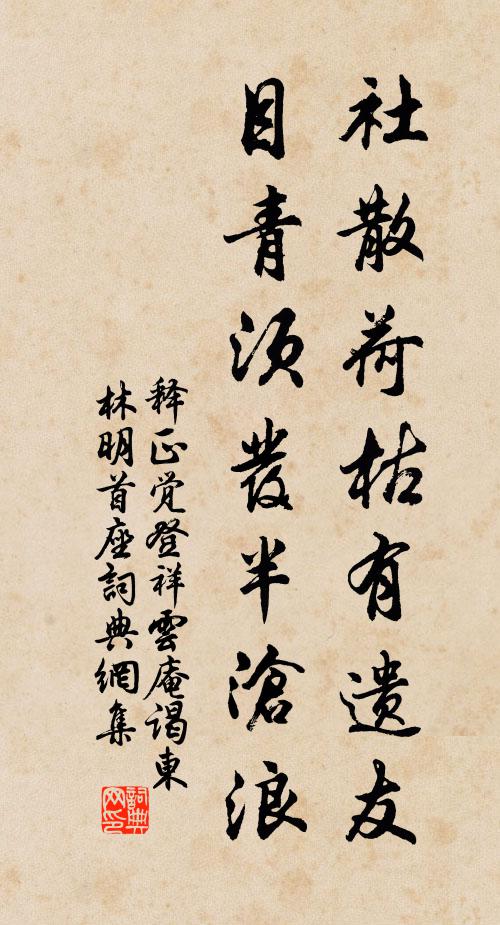 社散荷枯有遗友
目青须發半滄浪
释正觉登祥雲庵謁東
林明首座詞典網集
詞典
网印